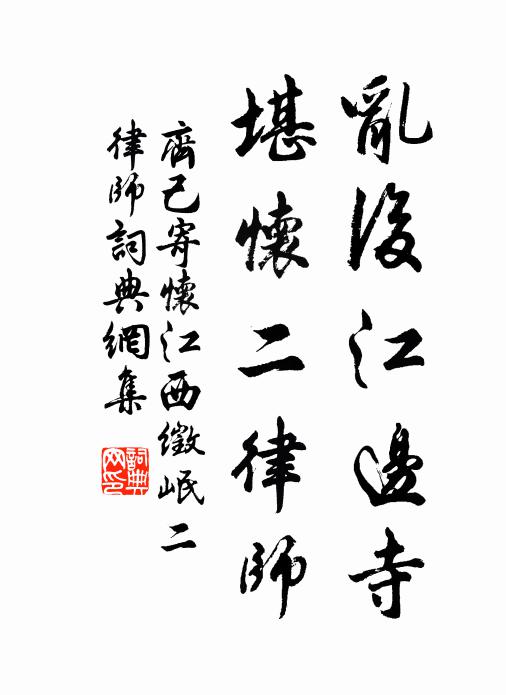 亂後江邊寺
堪懷二律師
齊己寄懷江西徵岷二
律師詞典網集
詞典
网印